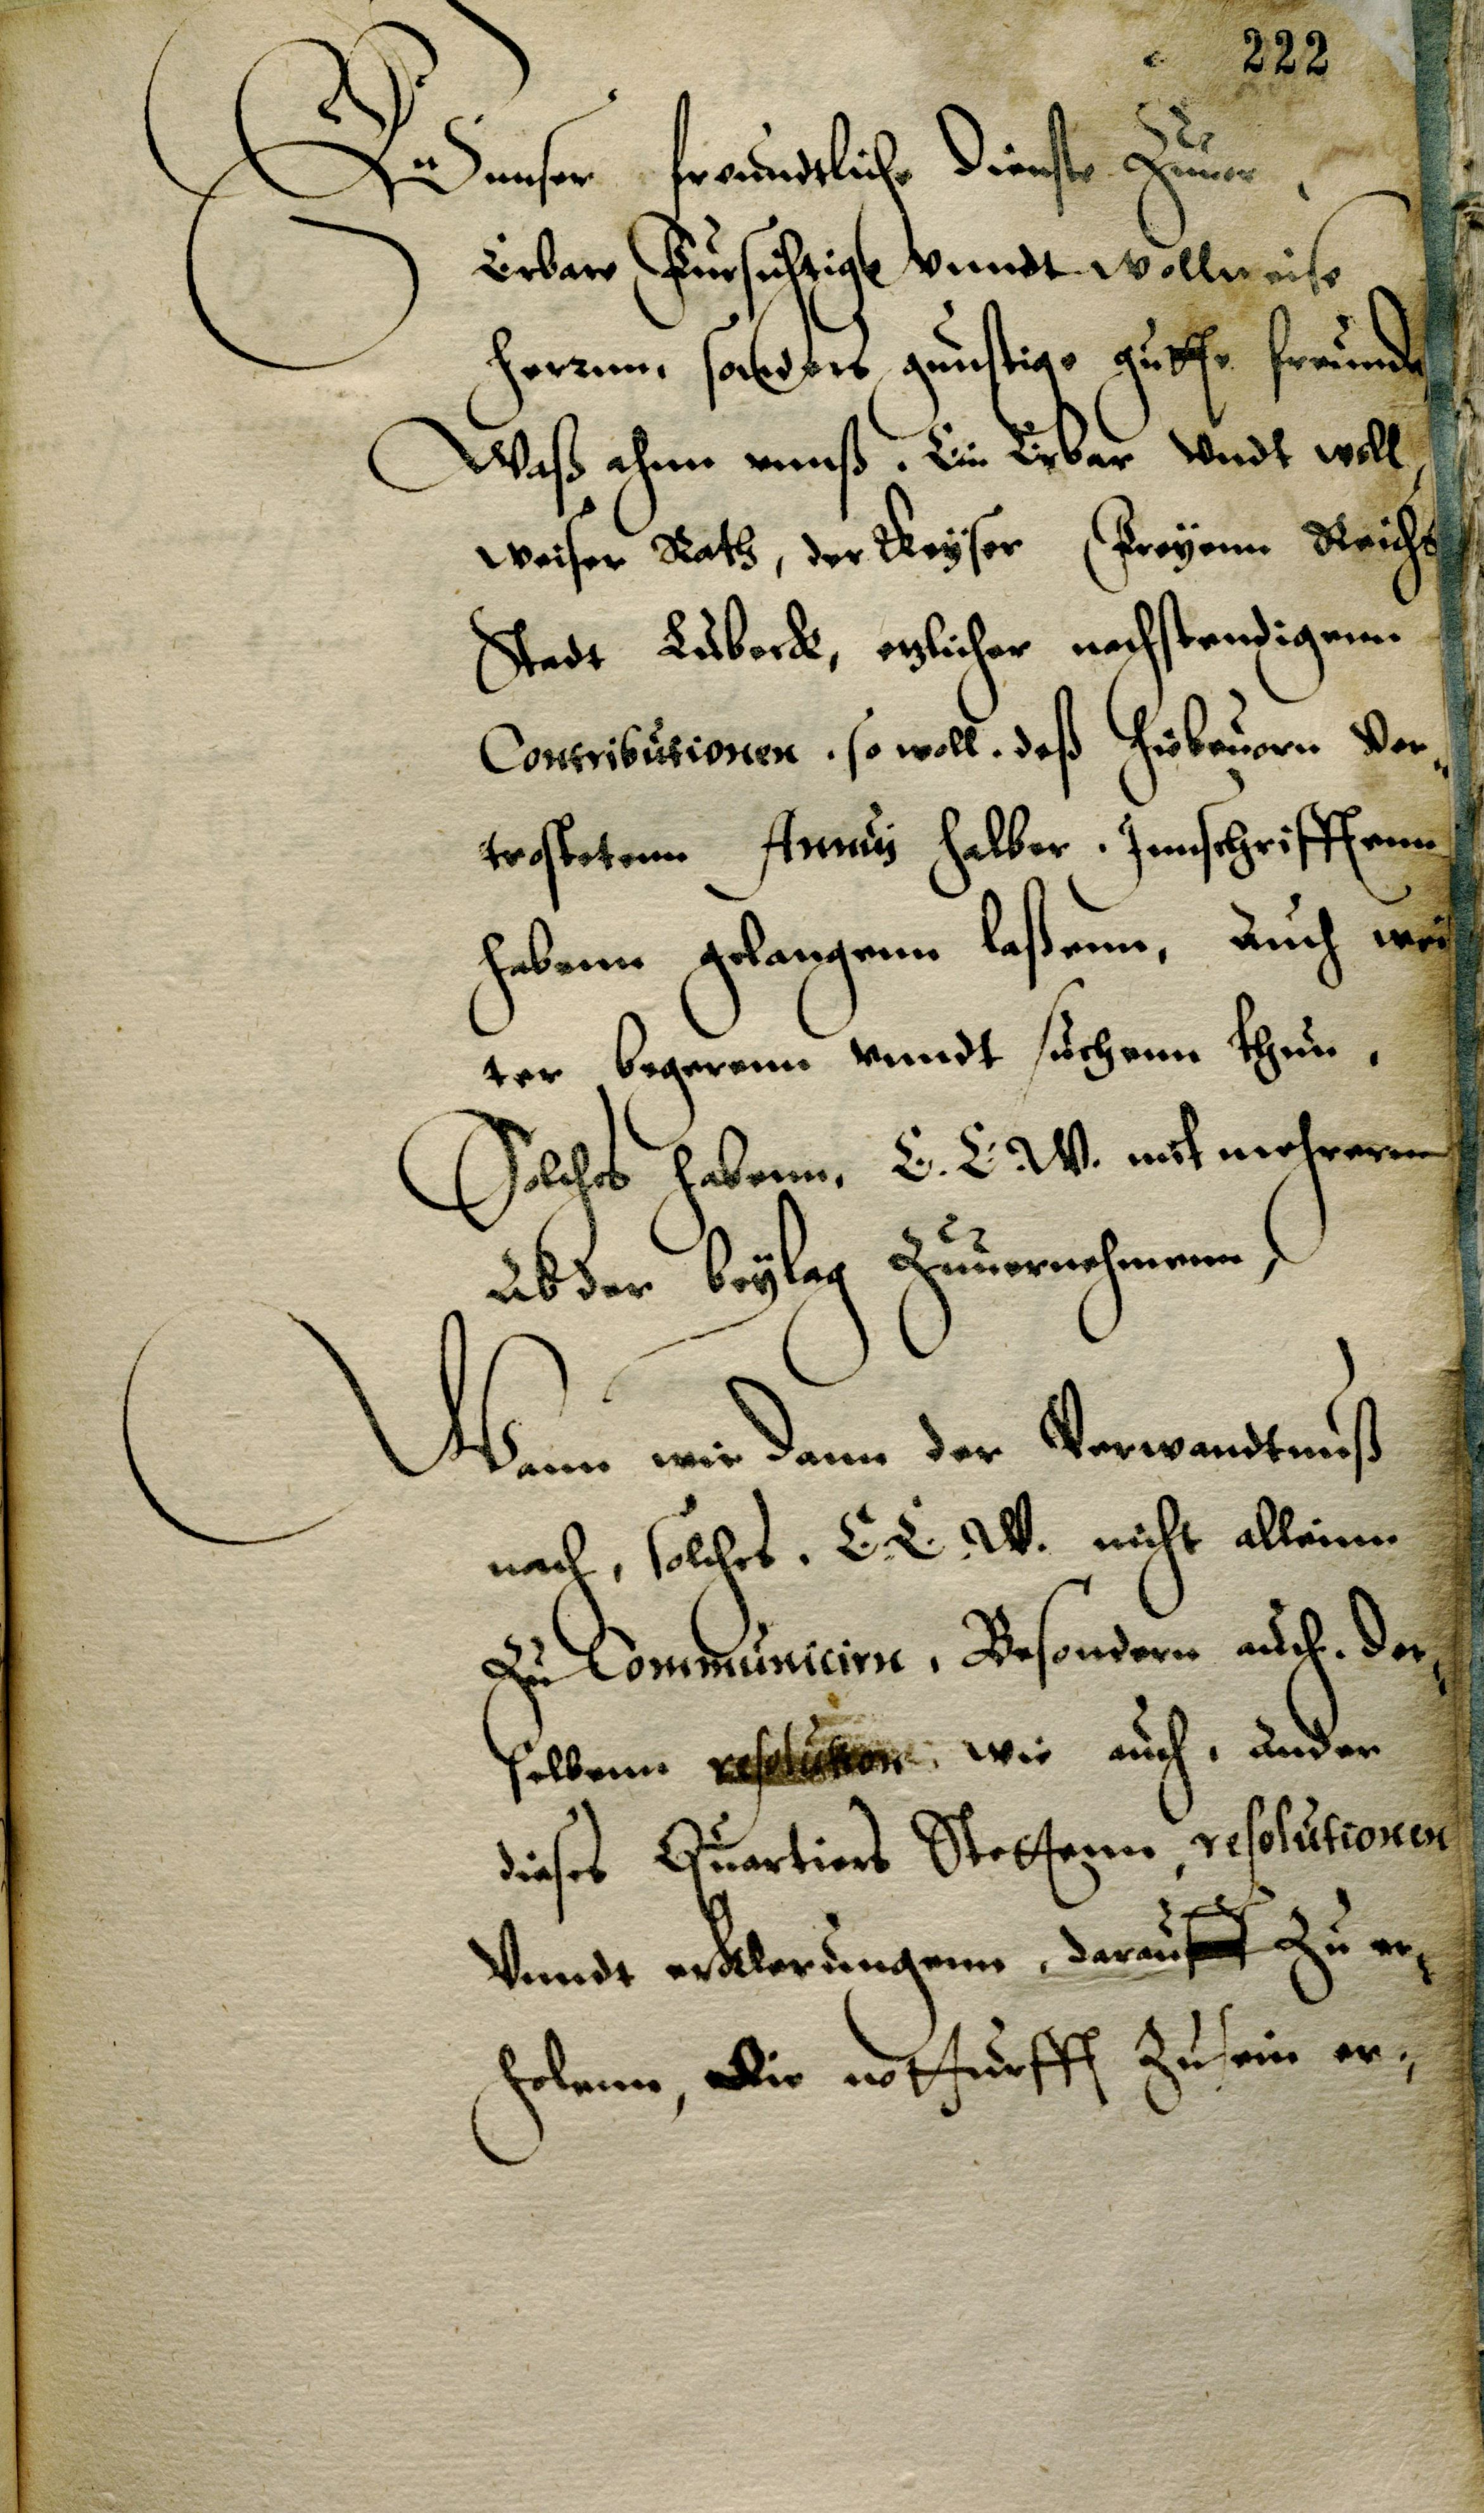 222
Vnser freundtliche Dienste Zuuor
Erbare Fursichtige vnndt wollweise
Herrnn, sonders gunstige gutthe freunde
Waß ahnn vnnß. Ein Erbar Vndt woll,
weiser Rath, der Keyser Freyenn Reichs
Stadt Lubeck, etzlicher nachstendigenn
Contributionen, so woll. deß hiebeuorn Ver„
trostetenn Annuj halber. Innschrifftenn
habenn gelangenn laßenn, Auch wei
ter begerenn vnndt suchenn thun,
Solches habenn, E. E. W. mit mehrerm
Ab der beylag Zuuernehmenn,
Wann wir dann der Verwandtnuß
nach, solches. E. E. W. nicht alleinn
Zu Communicirn, Besondern auch. Der„
selbenn resolution. wie auch. Ander
dieses Quartiers Stettenn, resolutionen
Vnndt erklerungenn, darauff Zu er„
holenn, Die notturfft Zu sein er„